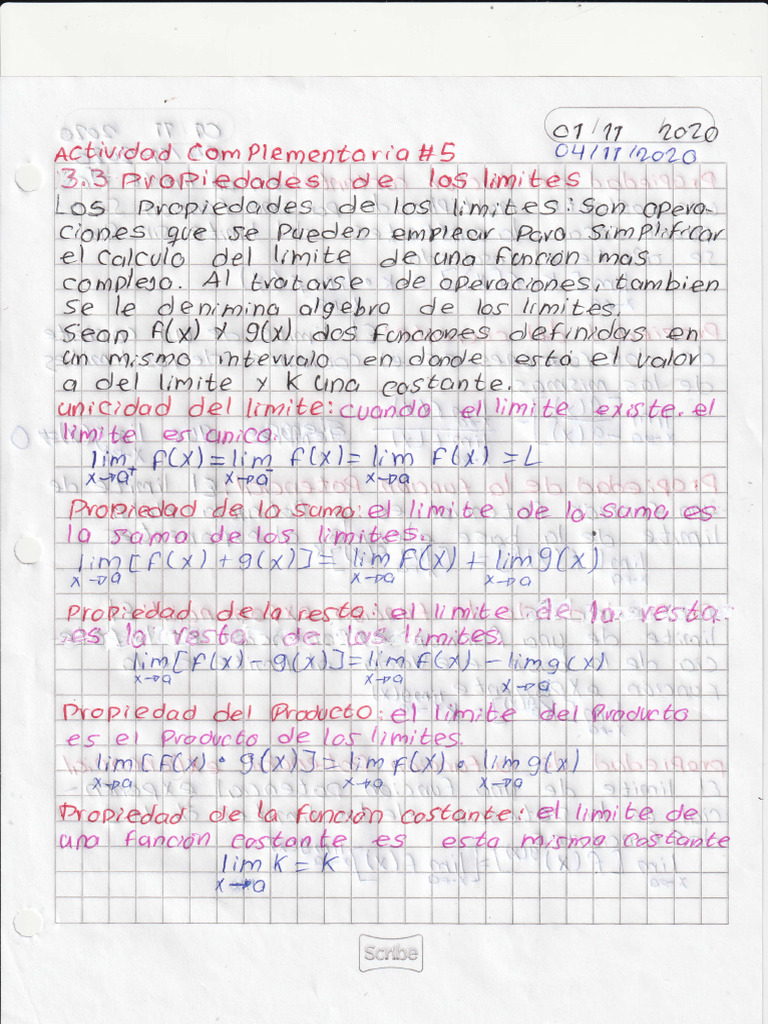 01/11 2020
Actividad Complementaria #5
04/11/2020
3.3 Propiedades de los limites
Los Propiedades de los limites: Son opera-
ciones que se pueden emplear para simplificar
el calculo del limite de una función mas
complejo. Al tratarse de operaciones, tambien
se le denimina algebra de los limites.
Sean f(x) y g(x) dos funciones definidas en
un mismo intervalo en donde está el valor
a del limite y K una costante.
unicidad del limite: cuando el limite existe. el
limite es unico.
lim f(x) = lim f(x) = lim f(x) = L
x→a⁺ x→a⁻ x→a
Propiedad de la suma: el limite de la suma es
la suma de los limites.
lim [f(x) + g(x)] = lim f(x) + lim g(x)
x→a x→a x→a
Propiedad de la resta: el limite de la resta
es la resta de los limites.
lim [f(x) - g(x)] = lim f(x) - lim g(x)
x→a x→a x→a
Propiedad del Producto: el limite del Producto
es el Producto de los limites.
lim [f(x) • g(x)] = lim f(x) • lim g(x)
x→a x→a x→a
Propiedad de la función costante: el limite de
una función costante es esta misma costante
lim K = K
x→a
Scribe